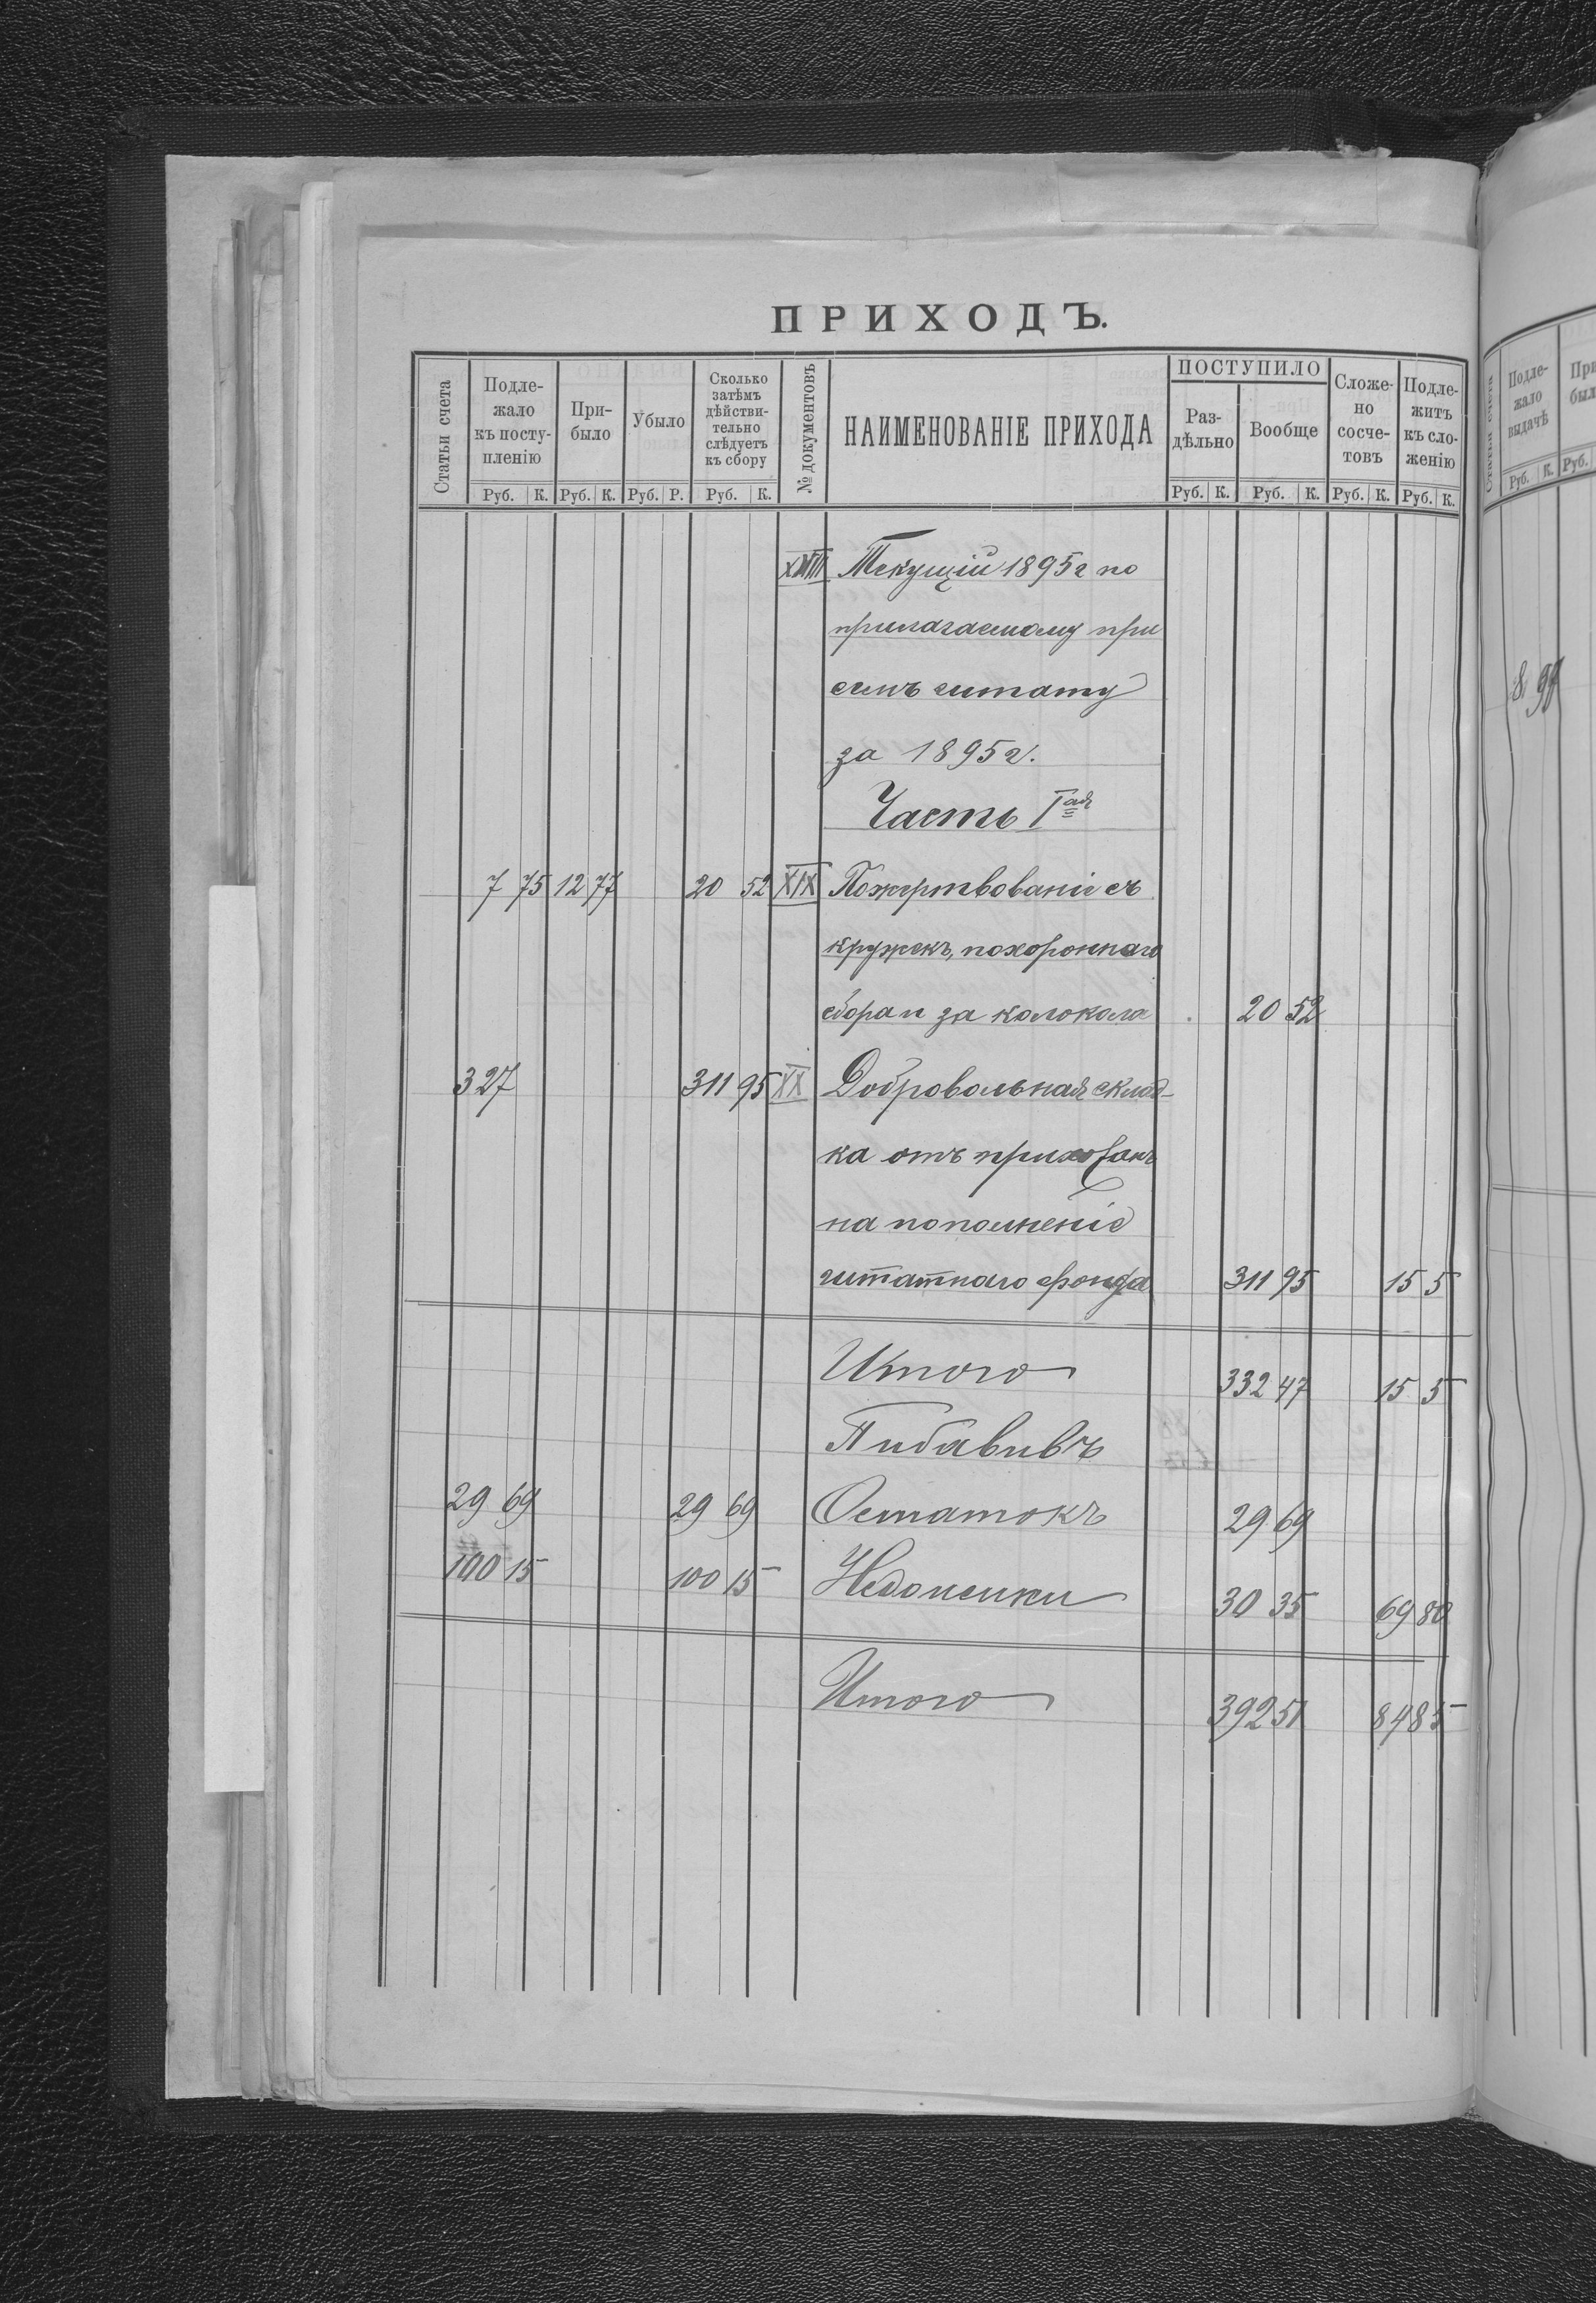 ПРИХОДЪ.
Статьи счета
Подле-
жало
къ посту-
пленію
При-
было
Убыло
Сколько
затѣмъ
дѣйстви-
тельно
слѣдуетъ
къ сбору
№ документовъ
НАИМЕНОВАНІЕ ПРИХОДА
ПОСТУПИЛО
Раз-
дѣльно
Вообще
Сложе-
но
сосче-
товъ
Подле-
житъ
къ сло-
женію
Руб. К. Руб. К. Руб. Р. Руб. К. Руб. К. Руб. К. Руб. К. Руб. К.
XVIII Текущій 1895 г по
прилагаемому при
семъ штату
за 1895 г.
Часть Iая
7 75 12 77 20 52 XIX Пожертвованіе съ
кружекъ, похороннаго
сбора и за колокола 20 52
327 311 95 XX Добровольная склад-
ка отъ прихожанъ
на пополненіе
штатнаго фонда 311 95 15 5
Итого 332 47 15 5
Пибавивъ
29 69 29 69 Остатокъ 29 69
100 15 100 15 Недоимки 30 35 69 80
Итого 392 51 84 85
Статьи счета
Подле-
жало
выдачѣ
При
был
Руб. К. Руб.